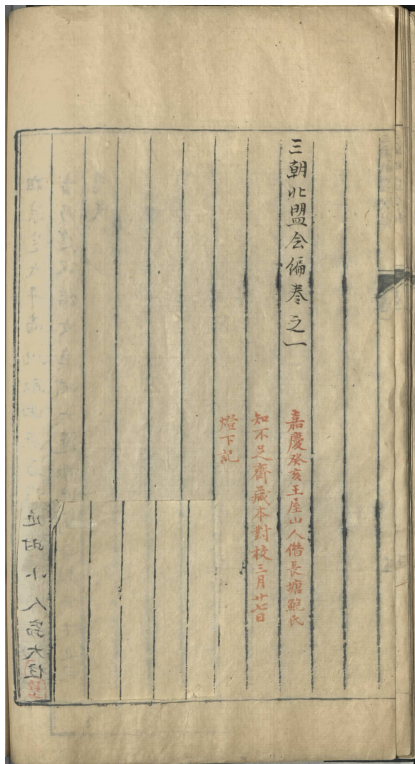 三朝北盟会编卷之一
嘉慶癸亥王屋山人借長塘鮑氏
知不足齋藏本對校三月廿七日
燈下記